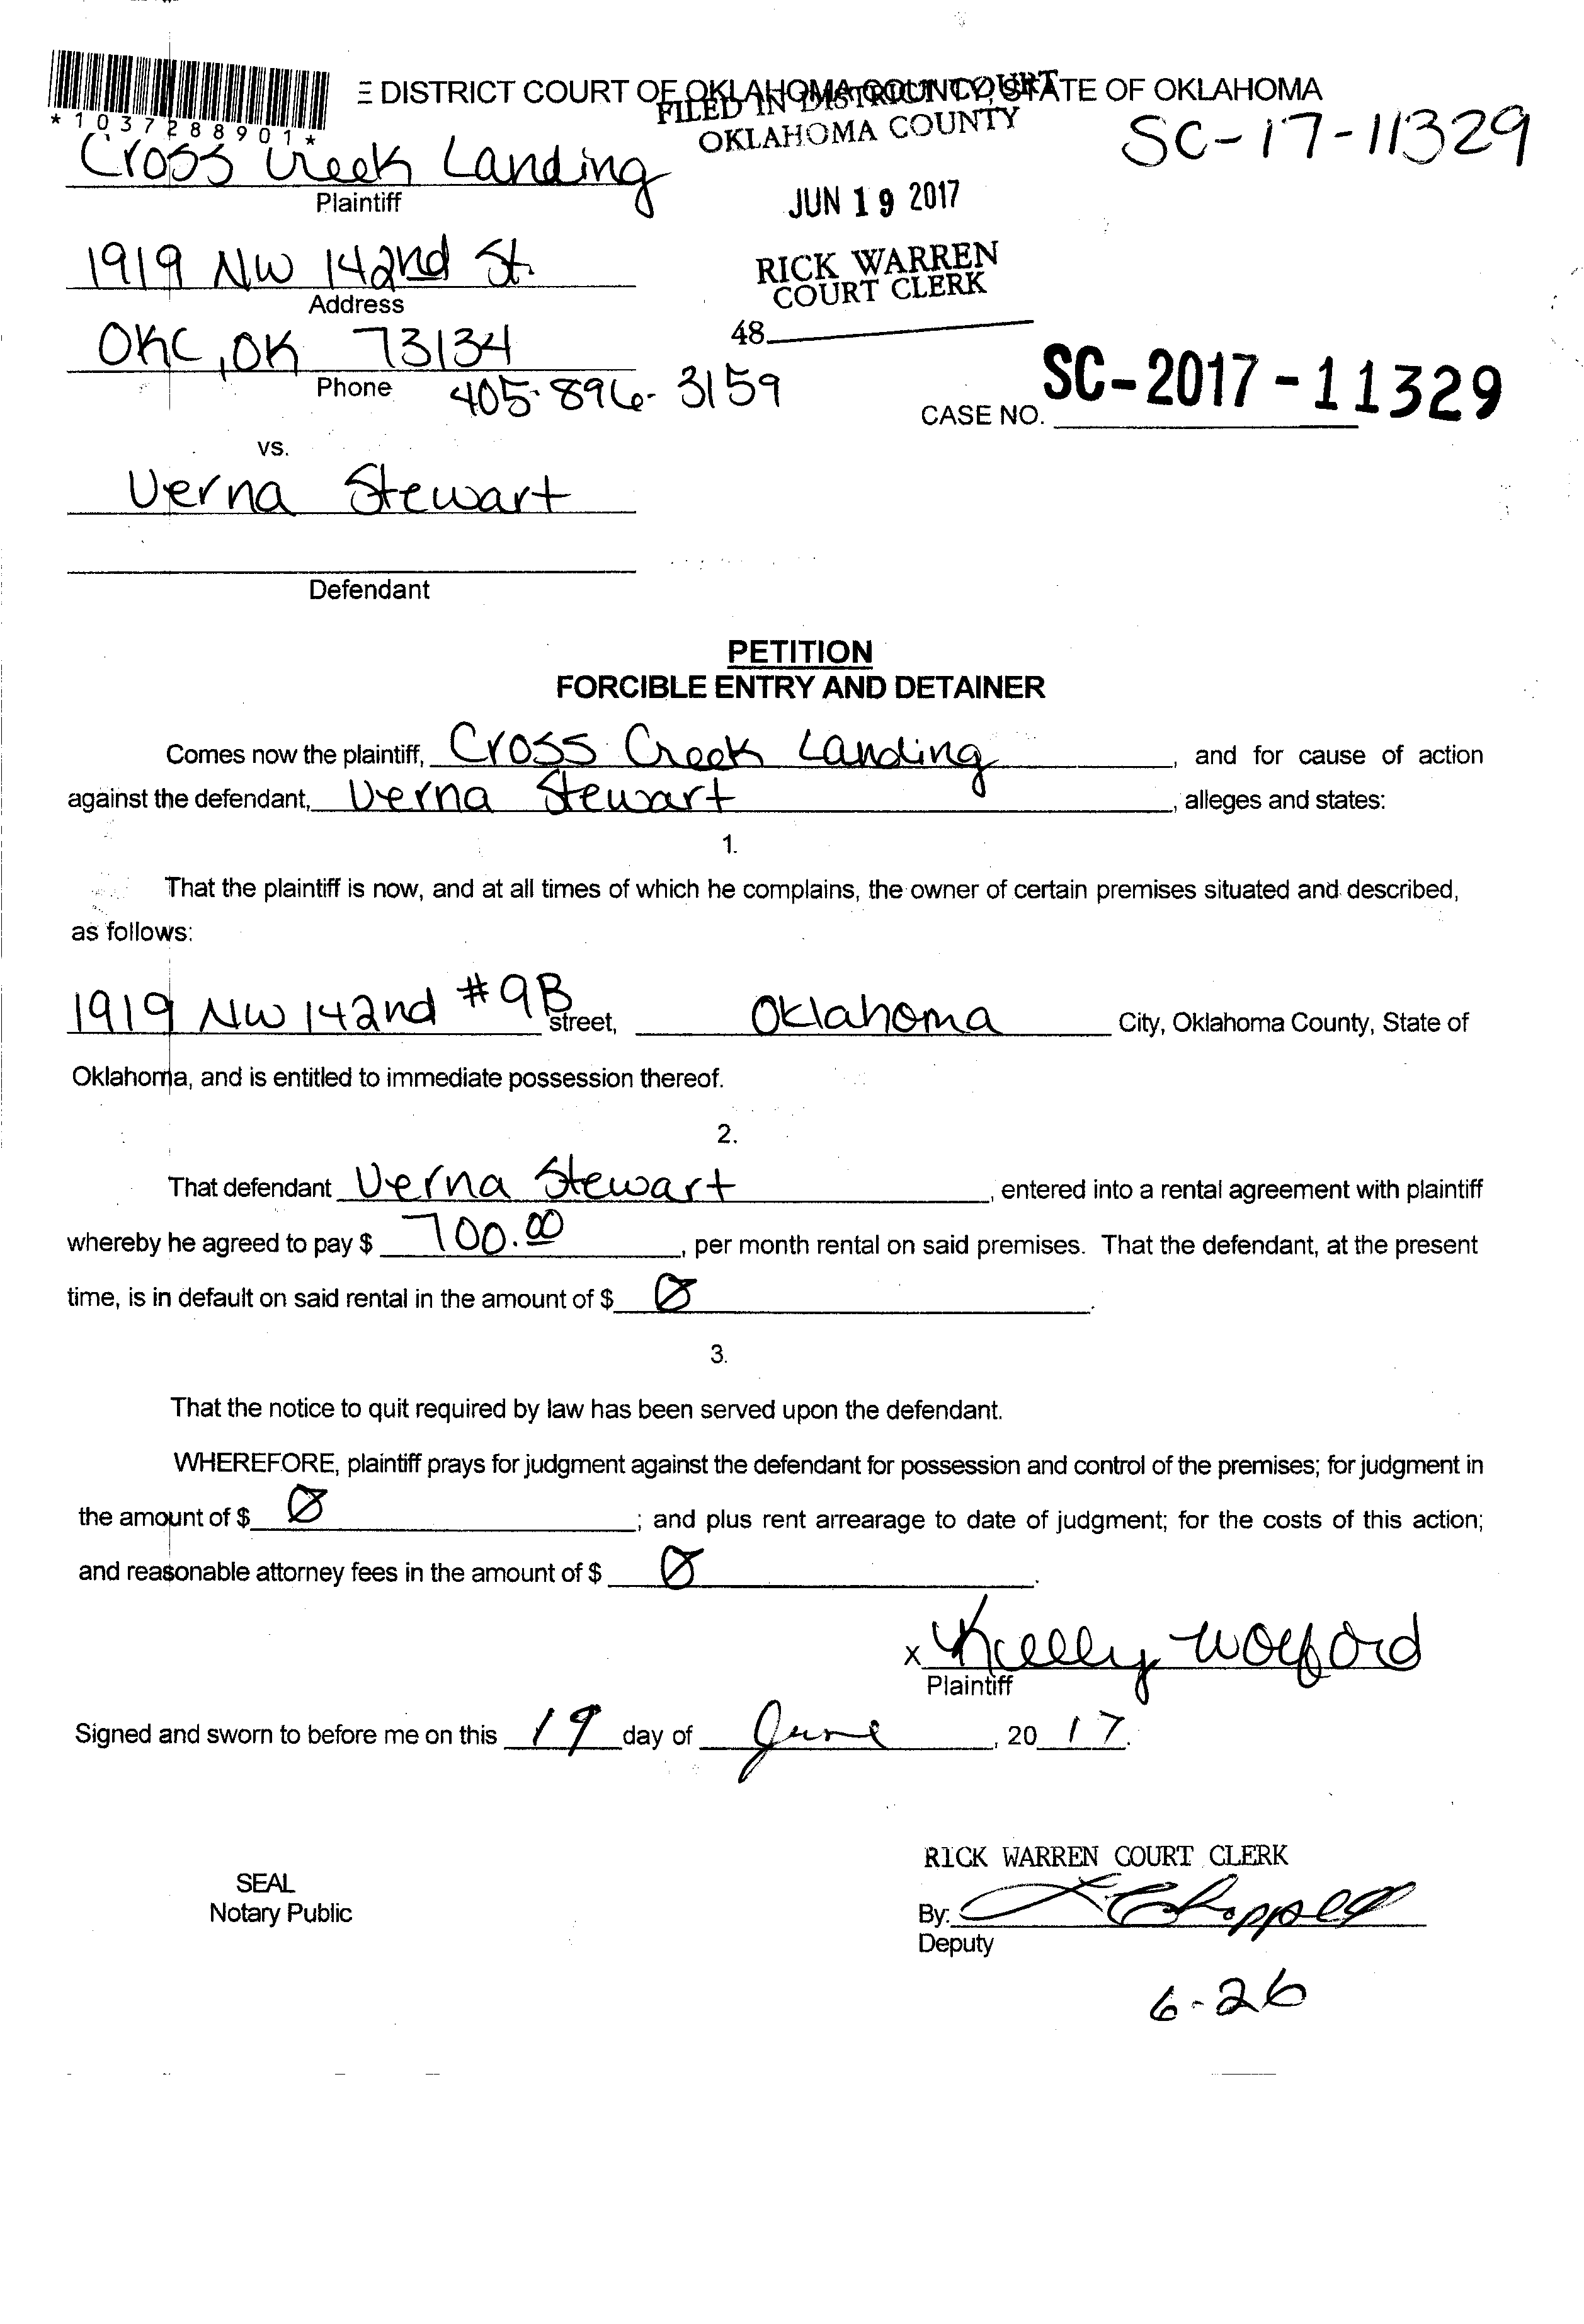 E DISTRICT COURT OF OKLAHOMA COUNTY, STATE OF OKLAHOMA
FILED IN DISTRICT COURT
OKLAHOMA COUNTY
*1037288901*
SC-17-11329
Cross Creek Landing
Plaintiff
JUN 19 2017
1919 NW 142nd St.
Address
RICK WARREN
COURT CLERK
OKC, OK 73134
48
Phone 405-896-3159
CASE NO. SC-2017-11329
vs.
Verna Stewart
Defendant
PETITION
FORCIBLE ENTRY AND DETAINER
Comes now the plaintiff, Cross Creek Landing, and for cause of action
against the defendant, Verna Stewart, alleges and states:
1.
That the plaintiff is now, and at all times of which he complains, the owner of certain premises situated and described,
as follows:
1919 NW 142nd #9B street, Oklahoma City, Oklahoma County, State of
Oklahoma, and is entitled to immediate possession thereof.
2.
That defendant Verna Stewart, entered into a rental agreement with plaintiff
whereby he agreed to pay $ 700.00, per month rental on said premises. That the defendant, at the present
time, is in default on said rental in the amount of $ Ø.
3.
That the notice to quit required by law has been served upon the defendant.
WHEREFORE, plaintiff prays for judgment against the defendant for possession and control of the premises; for judgment in
the amount of $ Ø; and plus rent arrearage to date of judgment; for the costs of this action;
and reasonable attorney fees in the amount of $ Ø.
x Kelly Wolford
Plaintiff
Signed and sworn to before me on this 19 day of June, 2017.
RICK WARREN COURT CLERK
SEAL
Notary Public
By:
Deputy
6-26